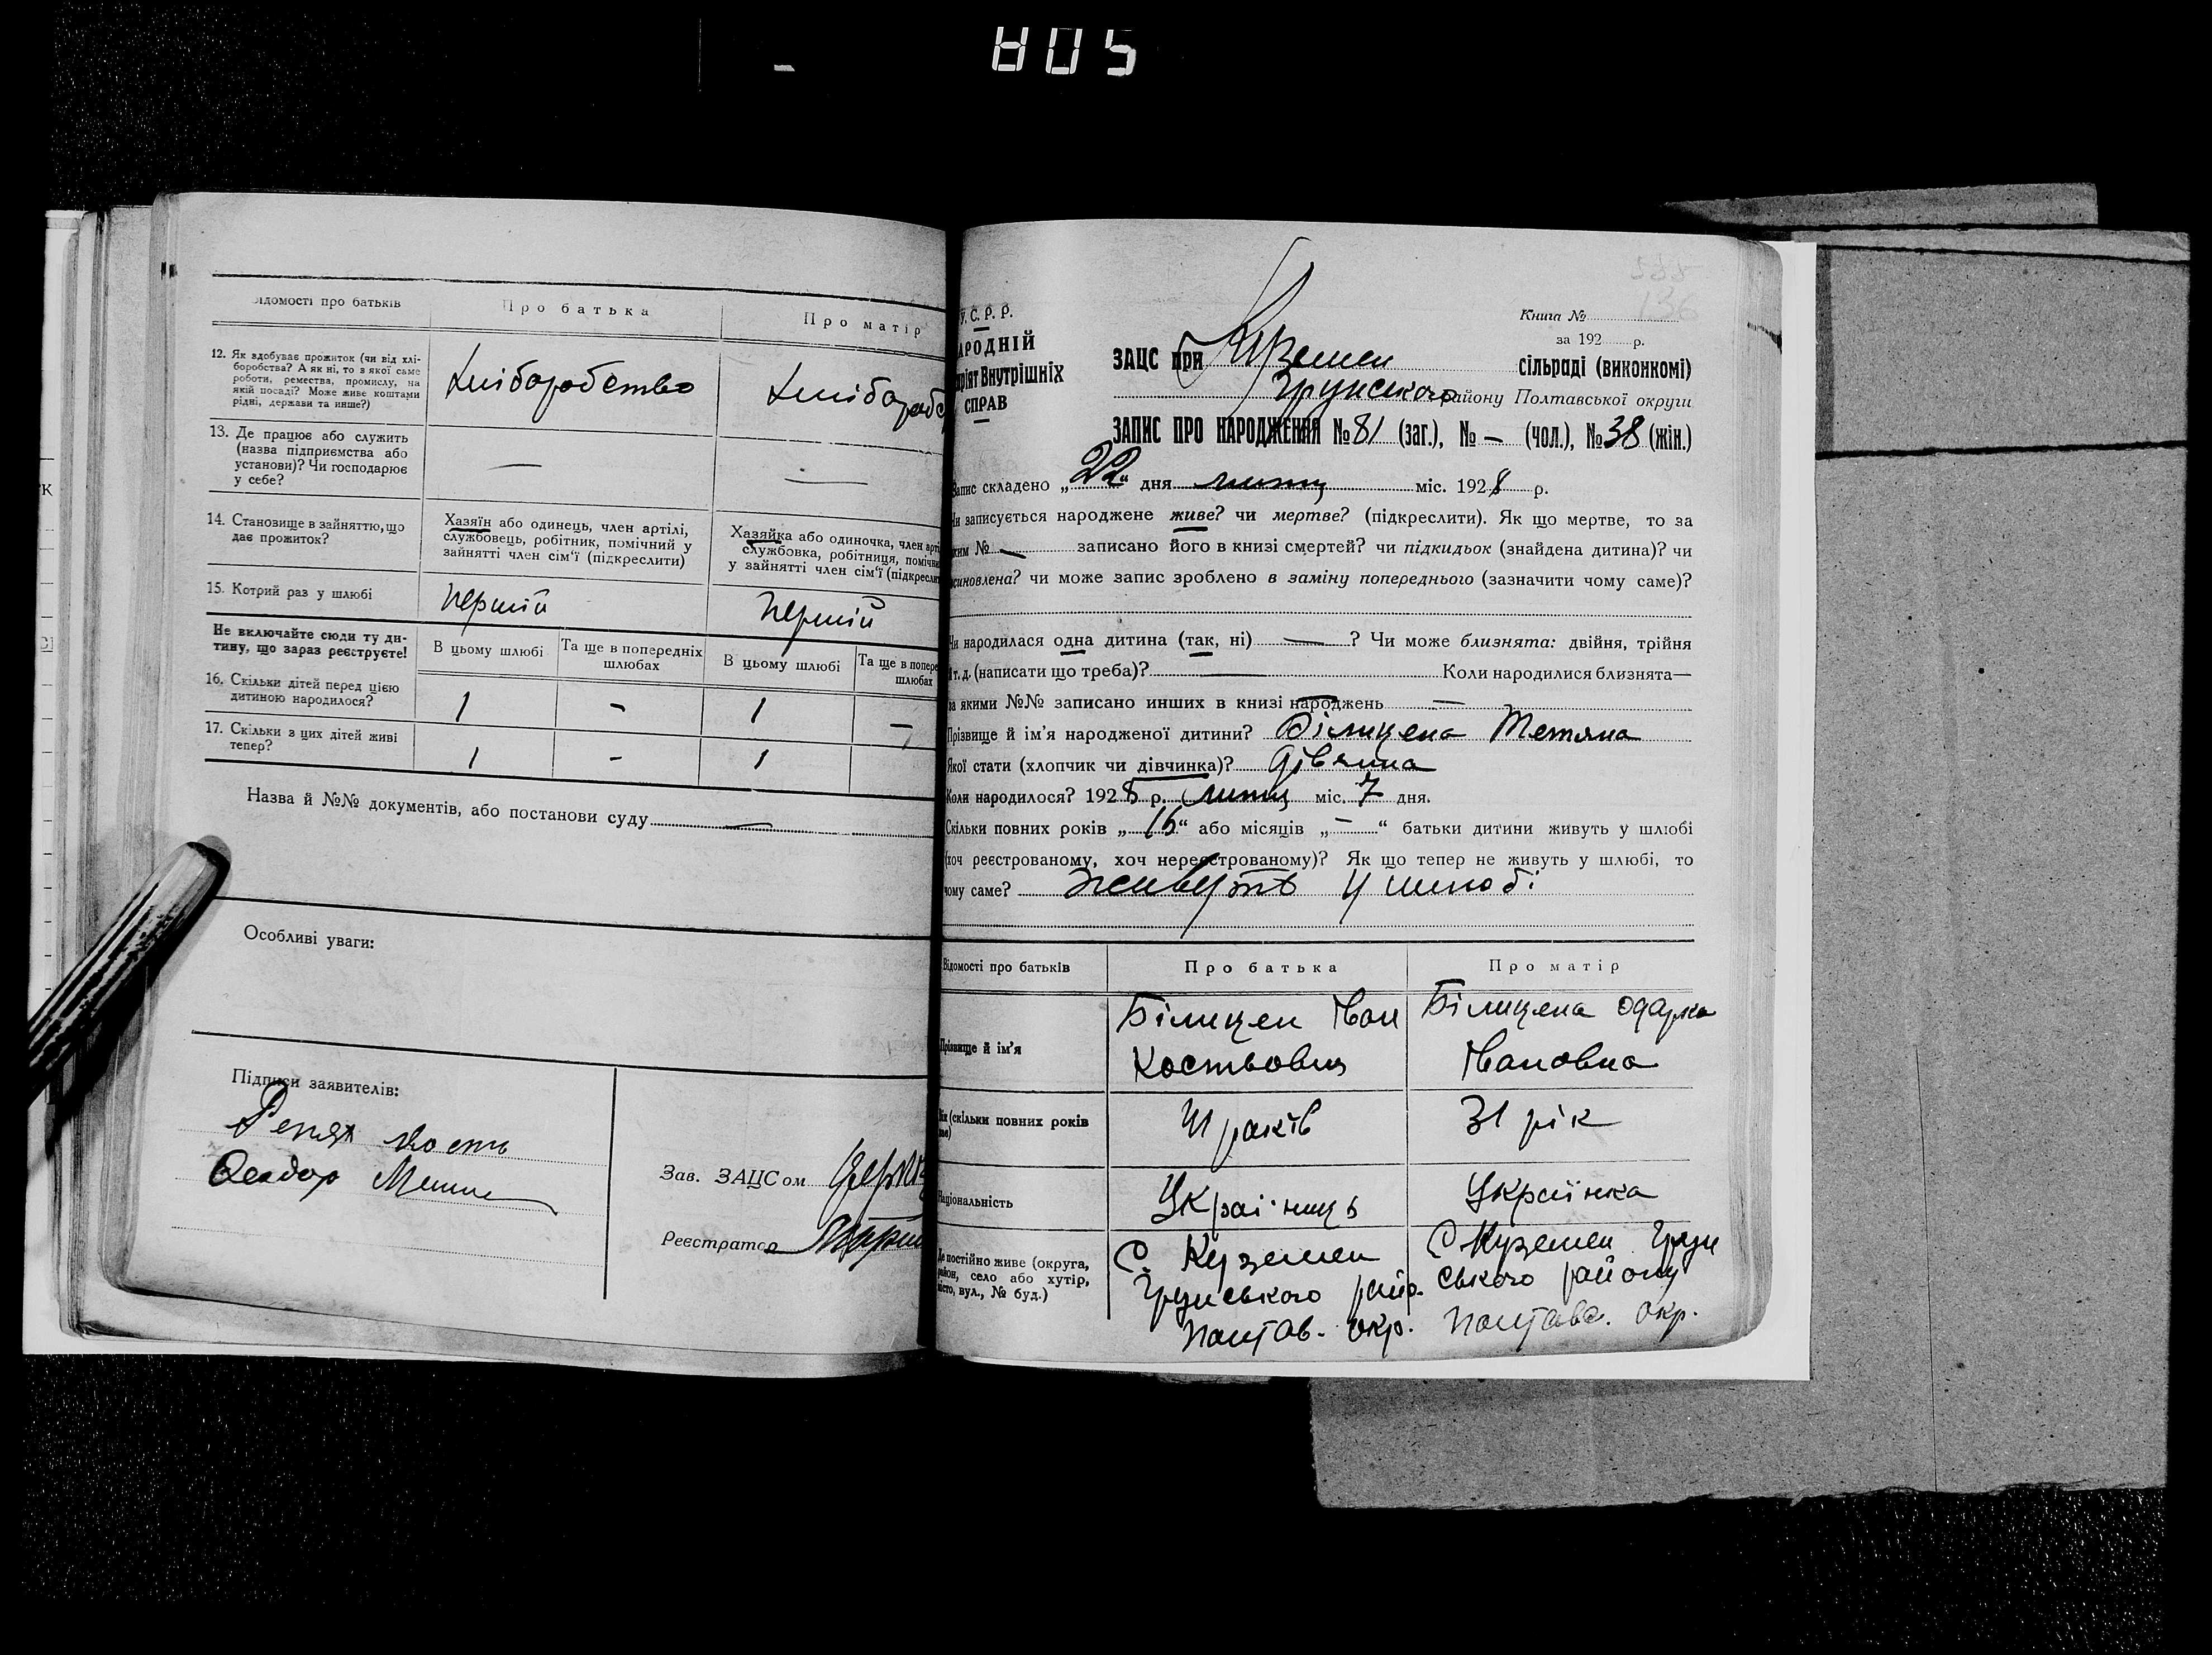 805
Відомості про батьків
Про батька
Про матір
12. Як здобуває прожиток (чи від хлі-
боробства? А як ні, то з якої саме
роботи, ремества, промислу, на
якій посаді? Може живе коштами
рідні, держави та инше?)
Хліборобство
Хлібороб
13. Де працює або служить
(назва підприємства або
установи)? Чи господарює
у себе?
—
—
14. Становище в зайняттю, що
дає прожиток?
Хазяїн або одинець, член артілі,
службовець, робітник, помічний у
зайнятті член сім'ї (підкреслити)
Хазяйка або одиночка, член арті
службовка, робітниця, помічн
у зайнятті член сім'ї (підкресли
15. Котрий раз у шлюбі
перший
перший
Не включайте сюди ту ди-
тину, що зараз реєструєте!
В цьому шлюбі
Та ще в попередніх
шлюбах
В цьому шлюбі
Та ще в попере
шлюбах
16. Скільки дітей перед цією
дитиною народилося?
1 - 1 -
17. Скільки з цих дітей живі
тепер?
1 - 1
Назва й №№ документів, або постанови суду —
Особливі уваги:
Підписи заявителів:
Зав. ЗАЦСом
Реєстратор
У.С.Р.Р.
АРОДНІЙ
ріят Внутрішніх
СПРАВ
136
Книга №
за 192 р.
ЗАЦС при Куземен сільраді (виконкомі)
Грунського району Полтавської округи
ЗАПИС ПРО НАРОДЖЕННЯ № 81 (заг.), № — (чол.), № 38 (жін.)
Запис складено „22“ дня міс. 1928 р.
Чи записується народжене живе? чи мертве? (підкреслити). Як що мертве, то за
яким № — записано його в книзі смертей? чи підкидьок (знайдена дитина)? чи
усиновлена? чи може запис зроблено в заміну попереднього (зазначити чому саме)?
Чи народилася одна дитина (так, ні) — ? Чи може близнята: двійня, трійня
й т. д. (написати що треба)? — Коли народилися близнята—
за якими №№ записано инших в книзі народжень —
Прізвище й ім'я народженої дитини? Білицена Тетяна
Якої стати (хлопчик чи дівчинка)? дівчина
Коли народилося? 1928 р. міс. 7 дня.
Скільки повних років „16“ або місяців „—“ батьки дитини живуть у шлюбі
(хоч реєстрованому, хоч нереєстрованому)? Як що тепер не живуть у шлюбі, то
чому саме? живуть у шлюбі
Відомості про батьків
Про батька
Про матір
Прізвище й ім'я
Білицен Іван
Костьович
Білицена Одарка
Івановна
Вік (скільки повних років
має)
41 років
31 рік
Національність
Українець
Українка
Де постійно живе (округа,
район, село або хутір,
місто, вул., № буд.)
С. Куземен
Грунського райо.
Полтав. окр.
С Куземен Грун
ського району
Полтавс. окр.